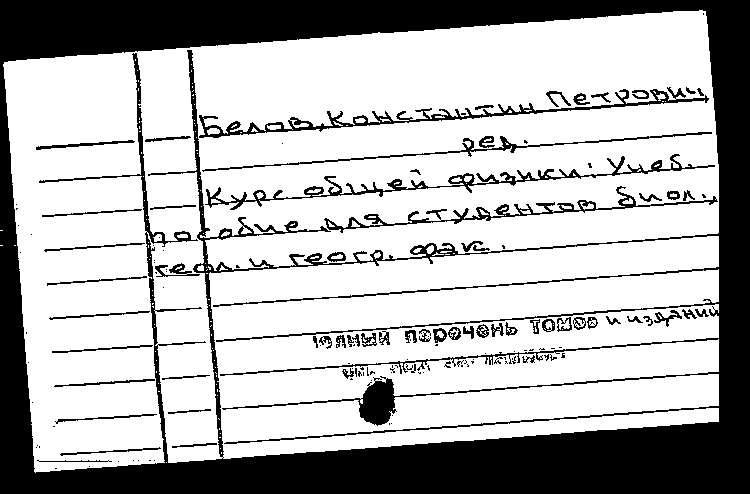 Белов, Константин Петрович,
ред.
Курс общей физики: Учеб.
пособие для студентов биол.,
геол. и геогр. фак.
полный перечень томов и изданий
см. под